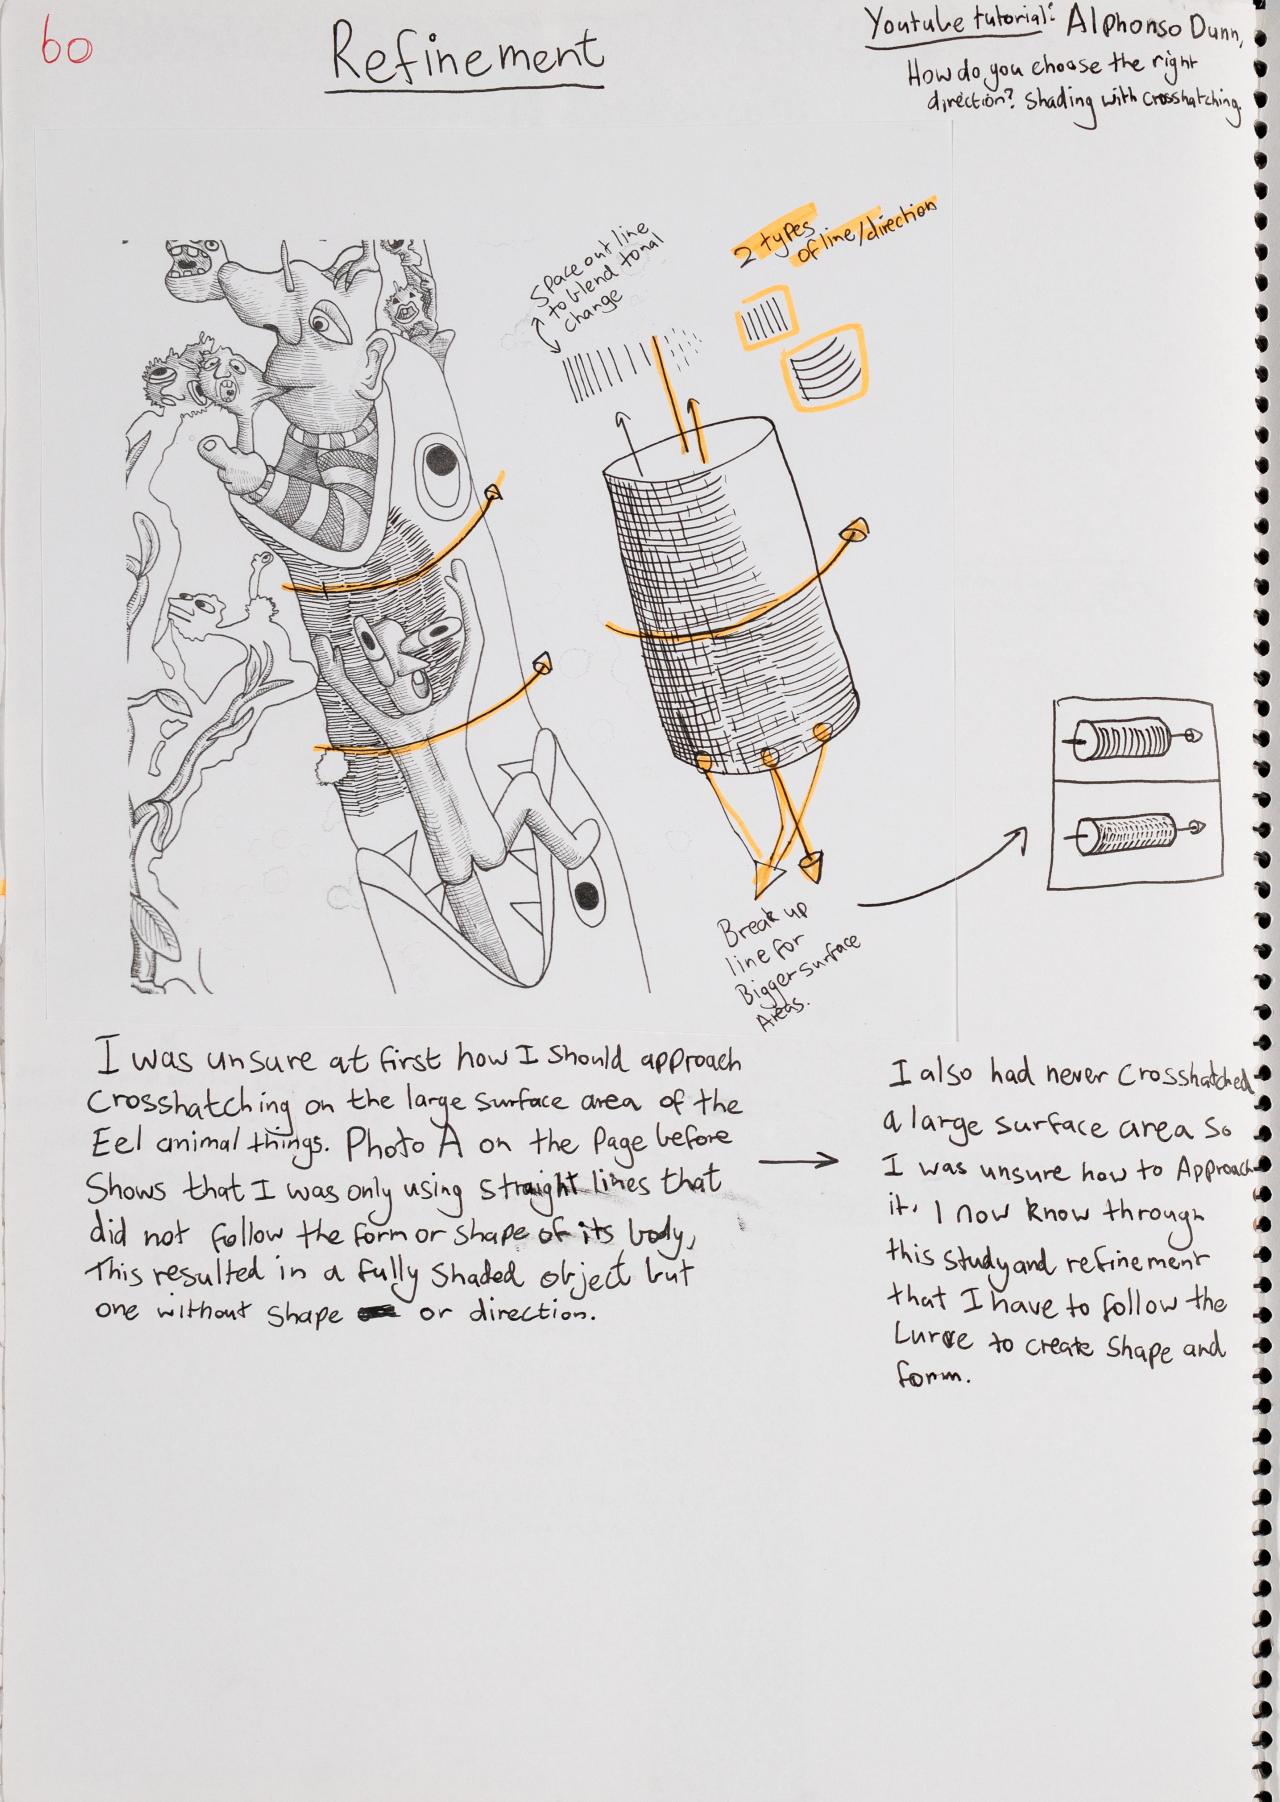 60
Refinement
Youtube tutorial: Alphonso Dunn,
How do you choose the right
direction? Shading with crosshatching.
Space out line
to blend tonal
change
2 types
of line/direction
Break up
line for
Bigger surface
Areas.
I was unsure at first how I should approach
Crosshatching on the large surface area of the
Eel animal things. Photo A on the Page before
Shows that I was only using straight lines that
did not follow the form or shape of its body,
This resulted in a fully shaded object but
one without shape or direction.
I also had never Crosshatched
a large surface area so
I was unsure how to Approach
it. I now know through
this study and refinement
that I have to follow the
Lurve to create shape and
form.